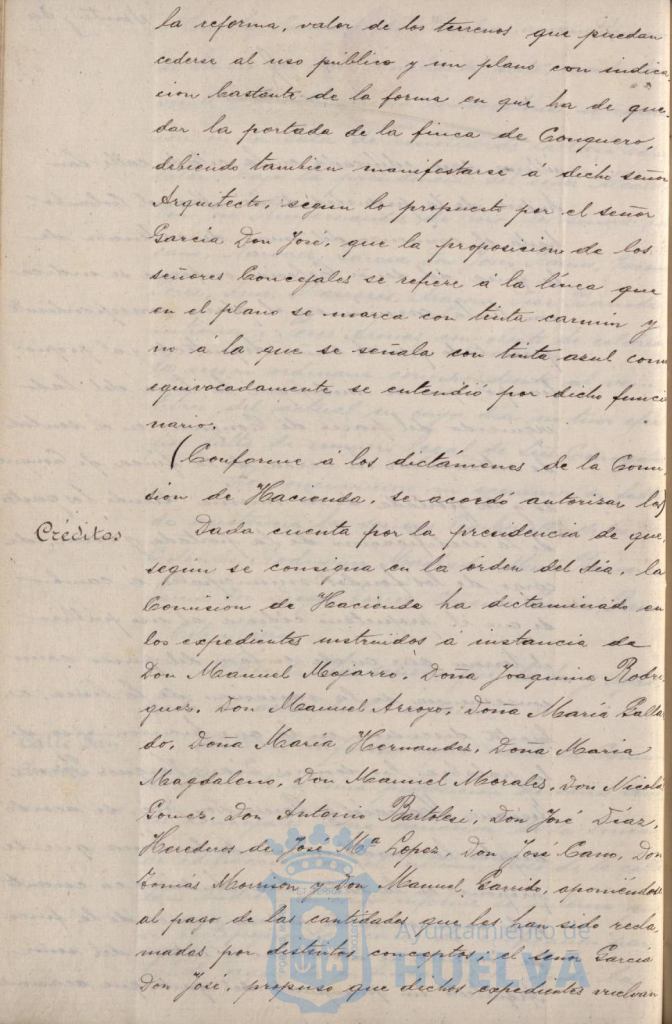 la reforma, valor de los terrenos que puedan
cederse al uso público y un plano con indica
cion bastante de la forma en que ha de que-
dar la portada de la finca de Conquero,
debiendo tambien manifestarse á dicho señor
Arquitecto, segun lo propuesto por el señor
García Don José, que la proposicion de los
señores Concejales se refiere á la línea que
en el plano se marca con tinta carmin y
no á la que se señala con tinta azul como
equivocadamente se entendió por dicho funcio
nario.
(Conforme á los dictámenes de la Comi
sion de Hacienda, se acordó autorizar los)
Créditos
Dada cuenta por la presidencia de que,
segun se consigna en la órden del dia, la
Comision de Hacienda ha dictaminado en
los expedientes instruidos á instancia de
Don Manuel Mojarro, Doña Joaquina Rodri
guez, Don Manuel Arroyo, Doña María Galla
do, Doña María Hernandez, Doña Maria
Magdaleno, Don Manuel Morales, Don Nicolás
Gomez, Don Antonio Bartolesi, Don José Díaz,
Herederos de José Mª Lopez, Don José Cano, Don
Tomás Morrison y Don Manuel Garrido, oponiéndose
al pago de las cantidades que les han sido recla
madas por distintos conceptos; el señor García
Don José, propuso que dichos expedientes vuelvan
Ayuntamiento de
HUELVA